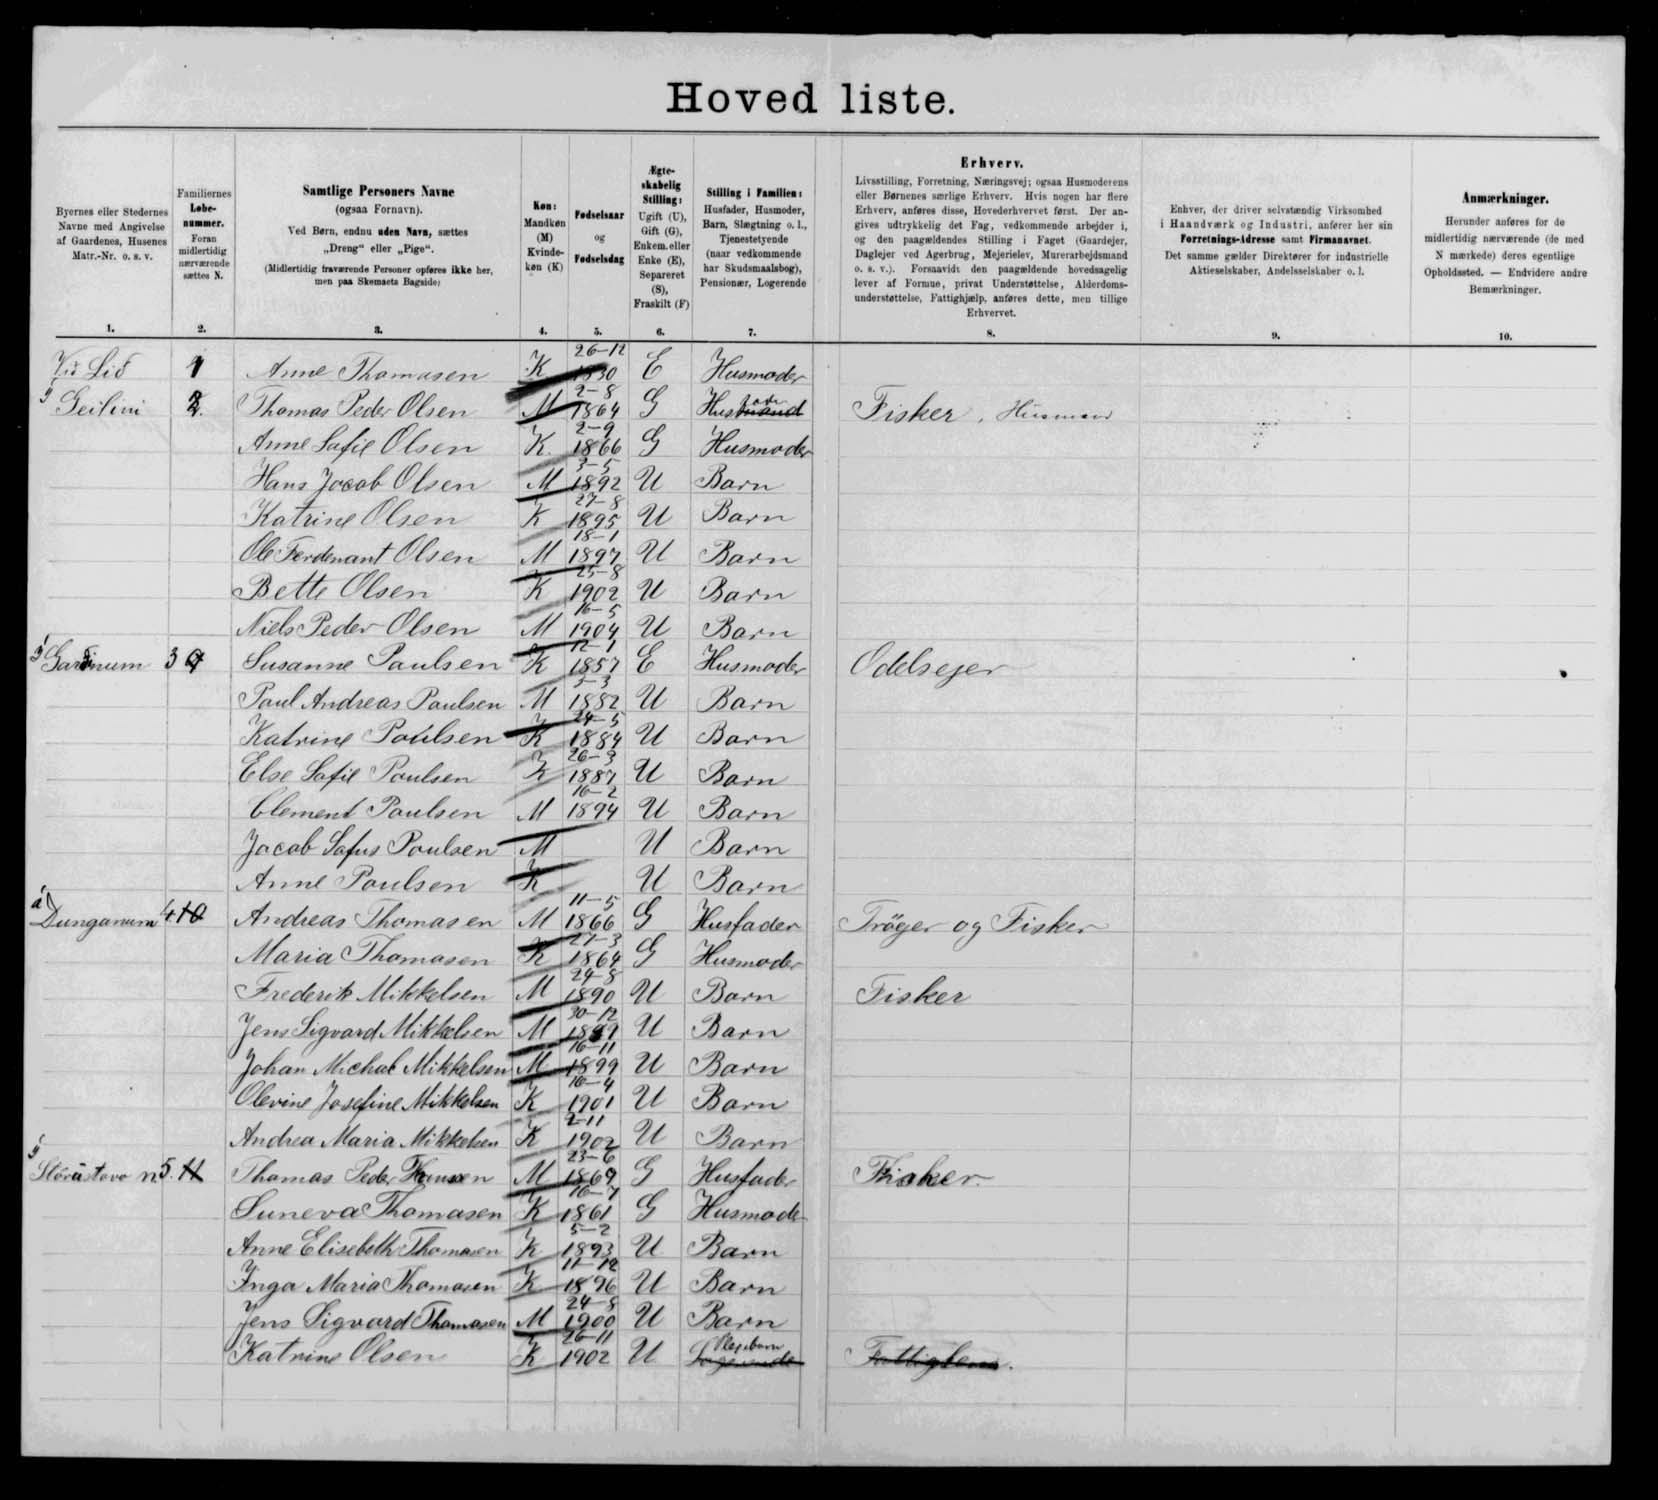 Hoved liste.
Byernes eller Stedernes
Navne med Angivelse
af Gaardenes, Husenes
Matr.-Nr. o. s. v.
1.
Familiernes
Løbe-
nummer.
Foran
midlertidig
nærværende
sættes N.
2.
Samtlige Personers Navne
(ogsaa Fornavn).
Ved Børn, endnu uden Navn, sættes
„Dreng“ eller „Pige“.
(Midlertidig fraværende Personer opføres ikke her,
men paa Skemaets Bagside)
3.
Køn:
Mandkøn
(M)
Kvinde-
køn (K)
4.
Fødselsaar
og
Fødselsdag
5.
Ægte-
skabelig
Stilling:
Ugift (U),
Gift (G),
Enkem. eller
Enke (E),
Separeret
(S),
Fraskilt (F)
6.
Stilling i Familien:
Husfader, Husmoder,
Barn, Slægtning o. l.,
Tjenestetyende
(naar vedkommende
har Skudsmaalsbog),
Pensionær, Logerende
7.
Erhverv.
Livsstilling, Forretning, Næringsvej; ogsaa Husmoderens
eller Børnenes særlige Erhverv. Hvis nogen har flere
Erhverv, anføres disse, Hovederhvervet først. Der an-
gives udtrykkelig det Fag, vedkommende arbejder i,
og den paagældendes Stilling i Faget (Gaardejer,
Daglejer ved Agerbrug, Mejerielev, Murerarbejdsmand
o. s. v.). Forsaavidt den paagældende hovedsagelig
lever af Formue, privat Understøttelse, Alderdoms-
understøttelse, Fattighjælp, anføres dette, men tillige
Erhvervet.
8.
Enhver, der driver selvstændig Virksomhed
i Haandværk og Industri, anfører her sin
Forretnings-Adresse samt Firmanavnet.
Det samme gælder Direktører for industrielle
Aktieselskaber, Andelsselskaber o. l.
9.
Anmærkninger.
Herunder anføres for de
midlertidig nærværende (de med
N mærkede) deres egentlige
Opholdssted. — Endvidere andre
Bemærkninger.
10.
Við Lið 1 Anne Thomasen K 26-12 1830 E Husmoder
í Geilini 2. Thomas Peder Olsen M 2-8 1864 G Husfader Fisker, Husmand
Anne Sofie Olsen K. 2-9 1866 G Husmoder
Hans Jacob Olsen M 3-5 1892 U Barn
Katrine Olsen K 27-8 1895 U Barn
Ole Ferdenant Olsen M 18-1 1897 U Barn
Bette Olsen K 25-8 1902 U Barn
Niels Peder Olsen M 16-5 1904 U Barn
3 Susanne Paulsen K 12-1 1857 E Husmoder Odelsejer
Poul Andreas Poulsen M 3-3 1882 U Barn
Katrine Poulsen K 24-5 1884 U Barn
Else Sofie Poulsen K 26-3 1887 U Barn
Clement Poulsen M 16-2 1894 U Barn
Jacob Sofus Poulsen M U Barn
Anne Poulsen K U Barn
á Dunganum 4. 10 Andreas Thomasen M 11-5 1866 G Husfader Trøger og Fisker
Maria Thomasen K 27-3 1864 G Husmoder
Frederik Mikkelsen M 24-8 1890 U Barn Fisker
Jens Sigvard Mikkelsen M 30-12 U Barn
Johan Michal Mikkelsen M 16-11 1899 U Barn
Olevine Josefine Mikkelsen K 16-4 1901 U Barn
Andrea Maria Mikkelsen K 2-11 1902 U Barn
5. 11 Thomas Peder M 23-6 1869 G Husfader Fisker.
Suneva Thomasen K 16-7 1861 G Husmoder
Anne Elisebeth Thomasen K 5-2 1893 U Barn
Inga Maria Thomasen K 11-12 1896 U Barn
Jens Sigvard Thomasen M 24-8 1900 U Barn
Katrine Olsen K 26-11 1902 U Plejebarn Logerende